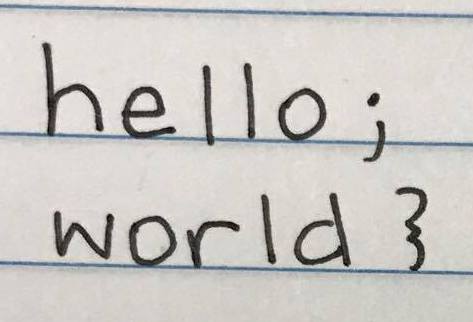 hello;
world }